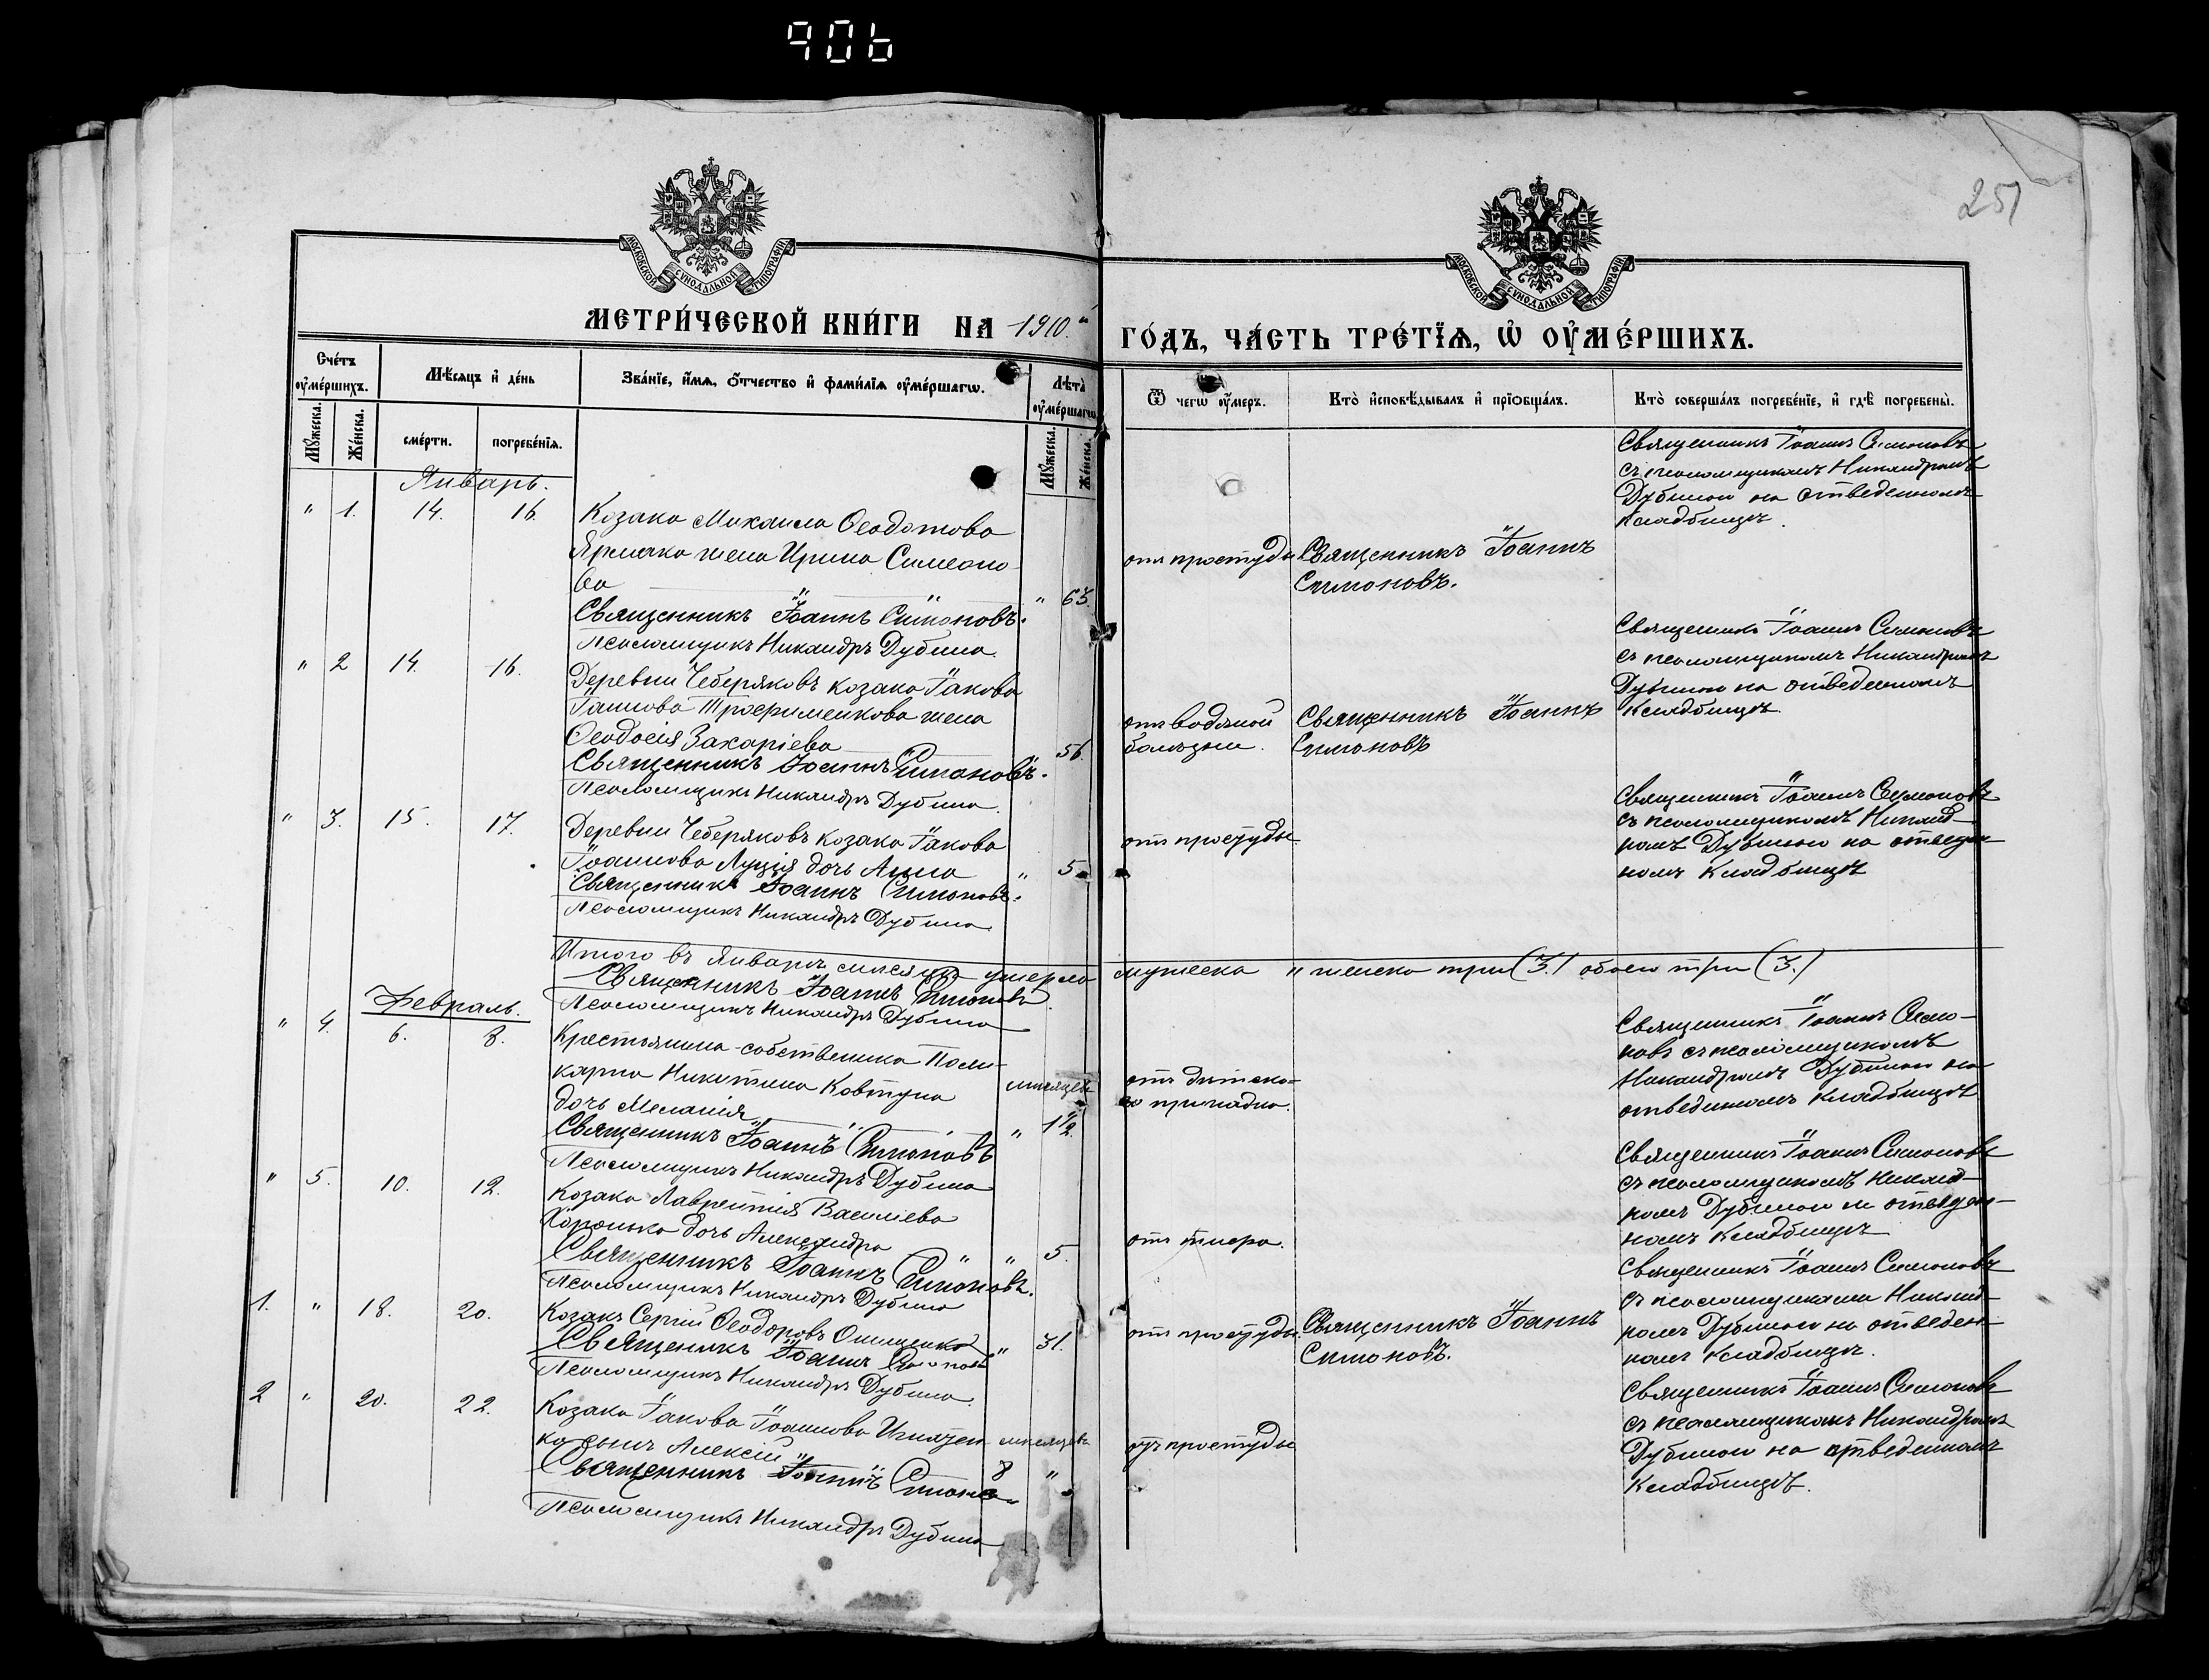 906
251
МОСКОВСКОЙ СѴНОДАЛЬНОЙ ТИПОГРАФІИ
МОСКОВСКОЙ СѴНОДАЛЬНОЙ ТИПОГРАФІИ
МЕТРИ́ЧЕСКОЙ КНИ́ГИ НА 1910.
ГО́ДЪ, ЧА́СТЬ ТРЕ́ТЇѦ, Ѡ҆ ОУ҆МЕ́РШИХЪ.
Сче́тъ оу҆ме́ршихъ.
Мѣ́сѧцъ и҆ де́нь
Зва́нїе, и҆́мѧ, ѻ҆́тчество и҆ фамѝлїѧ оу҆ме́ршагѡ.
Лѣ́та̀ оу҆ме́ршагѡ
Ѿ чегѡ̀ оу҆́меръ.
Кто̀ и҆сповѣ́дывалъ и҆ прїѻбща́лъ.
Кто̀ соверша́лъ погребе́нїе, и҆ гдѣ̀ погребены̀.
Мꙋ́жеска. Же́нска. сме́рти. погребе́нїѧ. Мꙋ́жеска. Же́нска.
Январь.
" 1. 14. 16. Козака Михаила Ѳеодотова
Ярмака жена Ирина Симеоно-
ва " 63.
Священникъ Іоаннъ Симоновъ.
Псаломщикъ Никандръ Дубина.
отъ простуды
Священникъ Іоаннъ
Симоновъ.
Священникъ Іоаннъ Симоновъ
съ псаломщикомъ Никандромъ
Дубиною на отведенномъ
кладбищѣ.
" 2 14. 16. Деревни Чеберяковъ козака Іакова
Іоаннова Трофименкова жена
Ѳеодосія Захаріева 56.
Священникъ Іоаннъ Симоновъ.
Псаломщикъ Никандръ Дубина.
отъ водяной
болѣзни.
Священникъ Іоаннъ
Симоновъ
Священникъ Іоаннъ Симоновъ
съ псаломщикомъ Никандромъ
Дубиною на отведенномъ
кладбищѣ.
" 3. 15. 17. Деревни Чеберяковъ козака Іакова
Іоаннова дочь Анна " 5
Священникъ Іоаннъ Симоновъ.
Псаломщикъ Никандръ Дубина
отъ простуды
Священникъ Іоаннъ Симоновъ
съ псаломщикомъ Никанд-
ромъ Дубиною на отведен-
номъ кладбищѣ
Итого въ Январѣ мѣсяцѣ умерло мужеска " женска три (3.) обоего три (3.)
Священникъ Іоаннъ Симоновъ.
Псаломщикъ Никандръ Дубина
Февраль.
" 4. 6. 8. Крестьянина-собственника Поли-
карпа Никитина Ковтуна мѣсяцевъ
дочь Меланія " 1 1/2.
Священникъ Іоаннъ Симоновъ
Псаломщикъ Никандръ Дубина
отъ дѣтска-
го припадка.
Священникъ Іоаннъ Симо-
новъ съ псаломщикомъ
Никандромъ Дубиною на
отведенномъ кладбищѣ
" 5. 10. 12. Козака Лаврентія Василіева
Хоронька дочь Александра " 5
Священникъ Іоаннъ Симоновъ.
Псаломщикъ Никандръ Дубина
отъ
Священникъ Іоаннъ Симоновъ
съ псаломщикомъ Никанд-
ромъ Дубиною на отведен-
номъ кладбищѣ
1. " 18. 20. Козакъ Сергій Ѳеодоровъ Онищенко " 31.
Священникъ Іоаннъ Симоновъ
Псаломщикъ Никандръ Дубина.
отъ простуды.
Священникъ Іоаннъ
Симоновъ.
Священникъ Іоаннъ Симоновъ
съ псаломщикомъ Никанд-
ромъ Дубиною на отведен-
номъ кладбищѣ.
2 " 20. 22. Козака Іакова Іоаннова Игнатен-
ко сынъ Алексій мѣсяцевъ 8 "
Священникъ Іоаннъ Симоновъ
Псаломщикъ Никандръ Дубина
отъ простуды
Священникъ Іоаннъ Симоновъ
съ псаломщикомъ Никандромъ
Дубиною на отведенномъ
кладбищѣ.